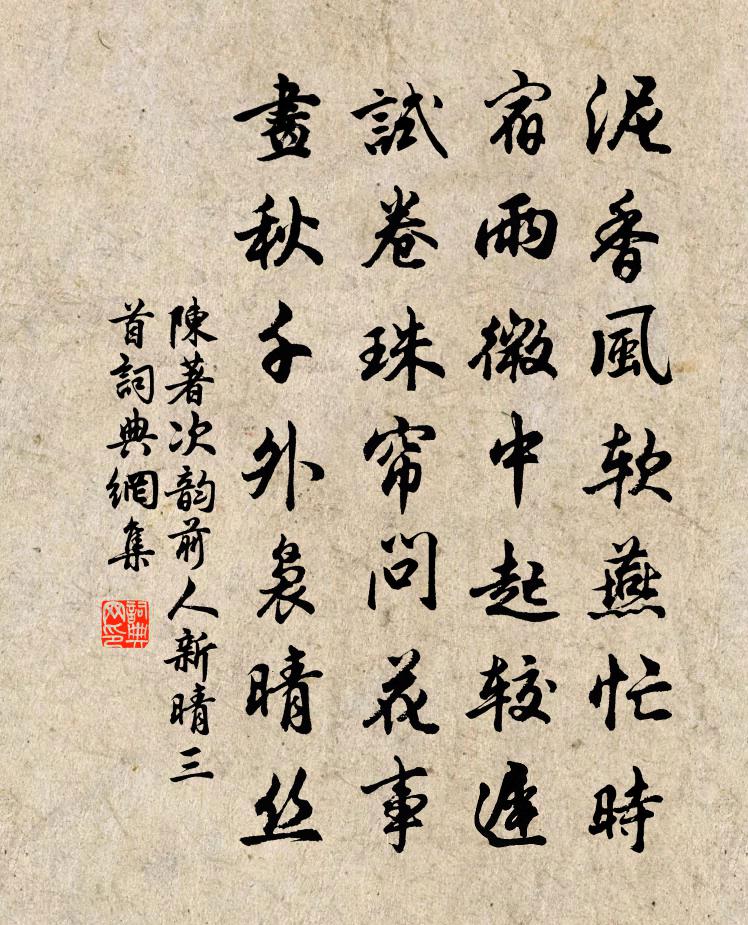 泥香風软燕忙時
宿雨微中起较遲
試卷珠帘問花事
畫秋千外袅晴丝
陳著次韵前人新晴三
首詞典網集
詞典網印